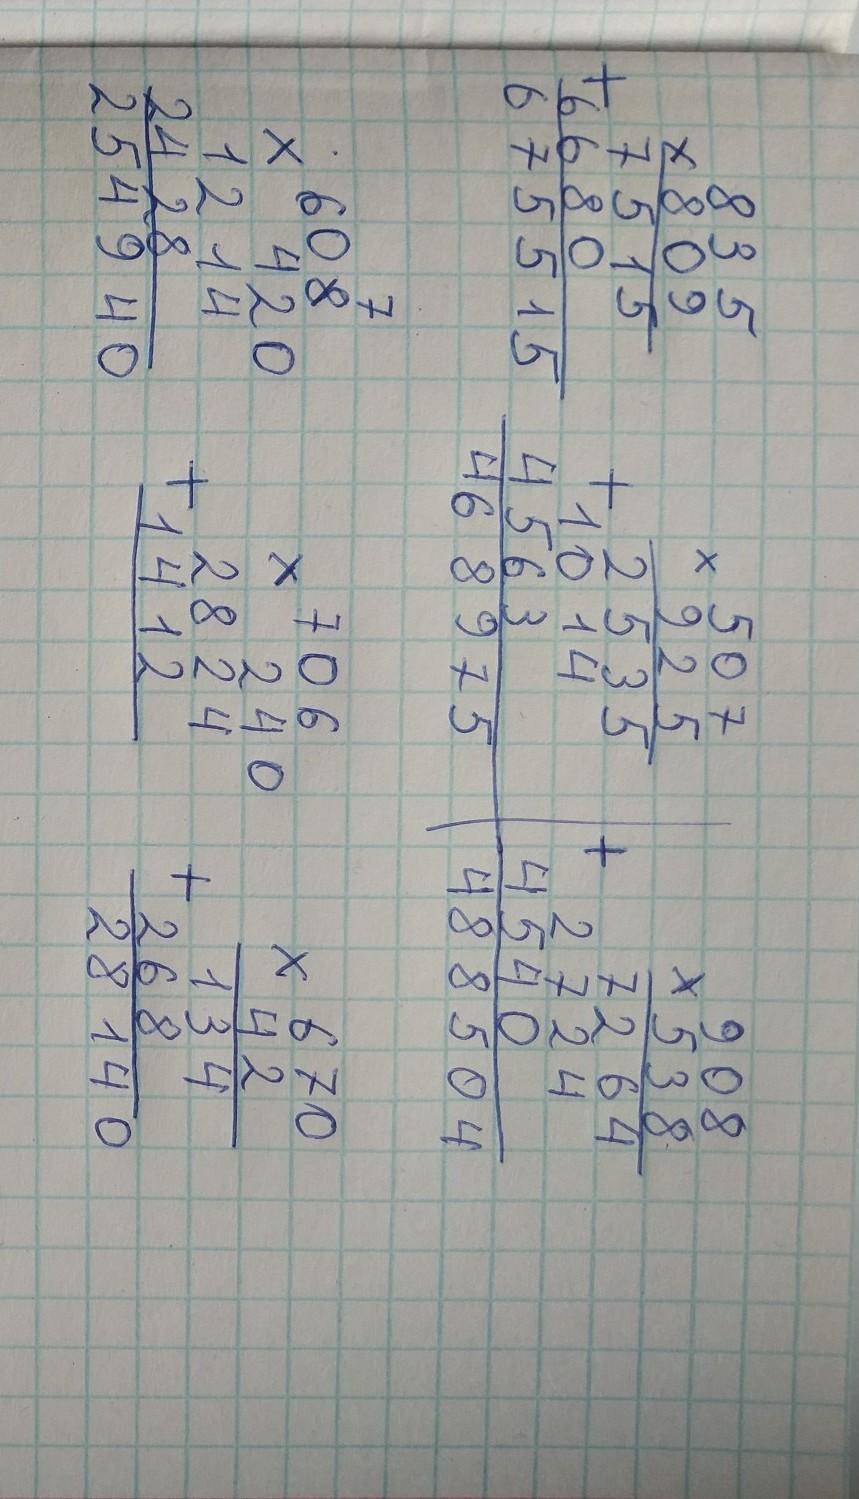 835
× 809
7515
+
6680
675515
507
× 925
2535
+
1014
4563
468975
908
× 538
7264
+
2724
4540
488504
7
608
× 420
1214
2428
254940
706
× 240
2824
+
1412
670
× 42
134
+
268
28140